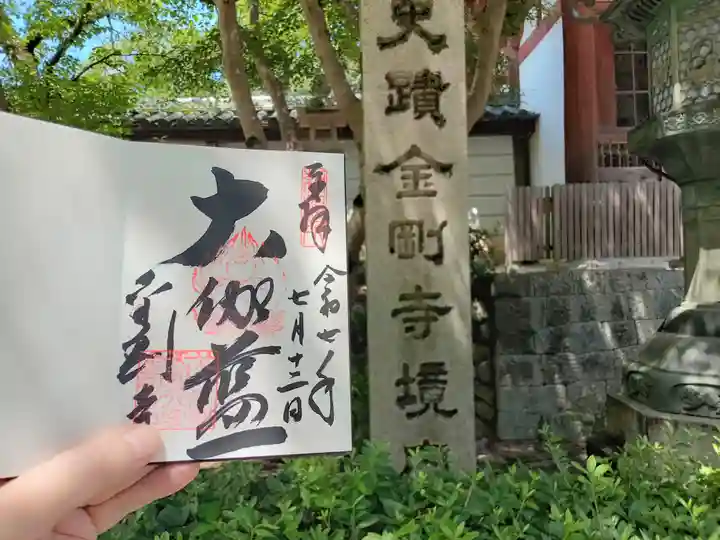 奉拝
令和七年
七月十二日
大伽藍
金剛寺
史蹟金剛寺境